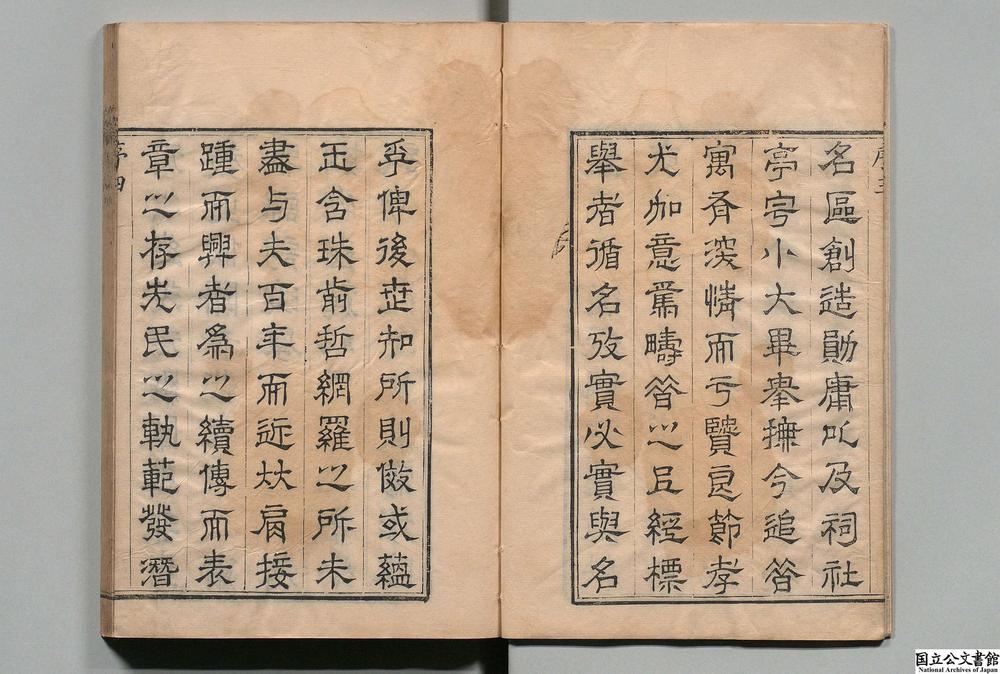 序三
名區創造勛庸以及祠社
亭宇小大畢舉撫今追昔
寓有深情而亏賢良節孝
尤加意焉疇昔之日經標
舉者循名攷實必實與名
孚俾後世知所則傚或蘊
玉含珠前哲網羅之所未
盡与夫百年而近比肩接
踵而興者為之續傳而表
章之存先民之軌範發潛
序四
国立公文書館
National Archives of Japan